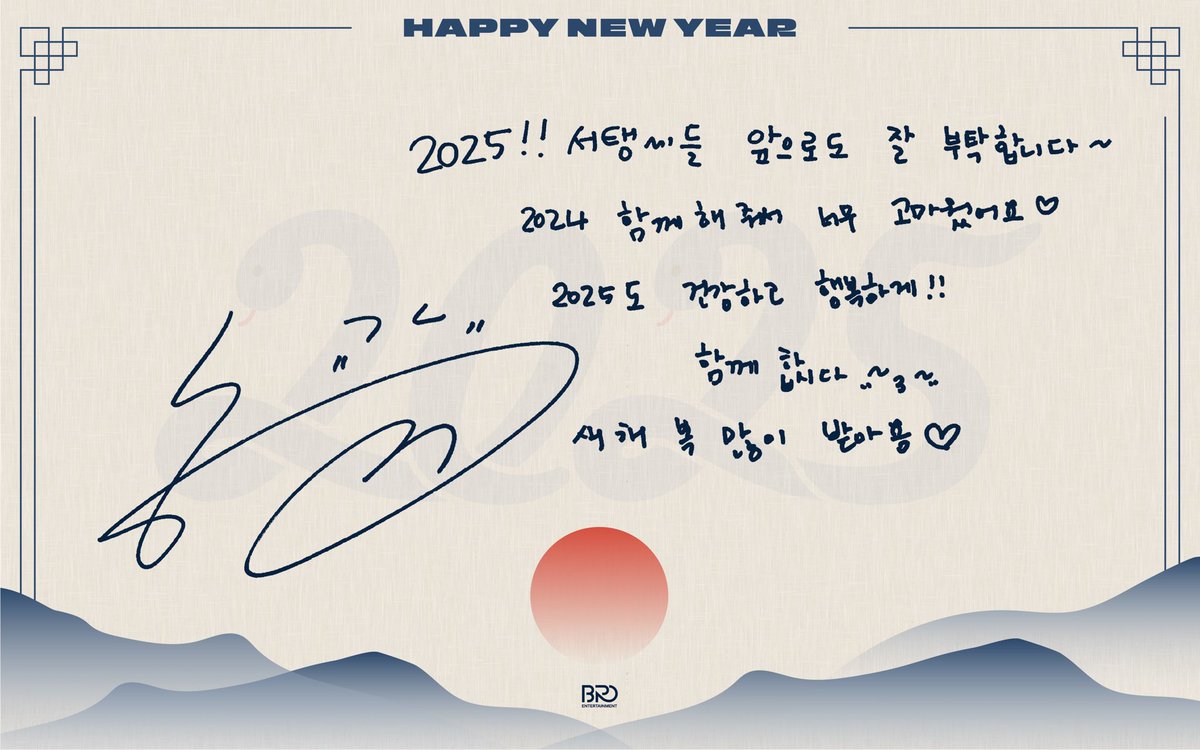 HAPPY NEW YEAR
2025!! 서탱씨들 앞으로도 잘 부탁합니다~
2024 함께해줘서 너무 고마웠어요♡
2025도 건강하고 행복하게!!
함께 합시다 ¨~3~¨
새해 복 많이 받아용♡
BRO
ENTERTAINMENT